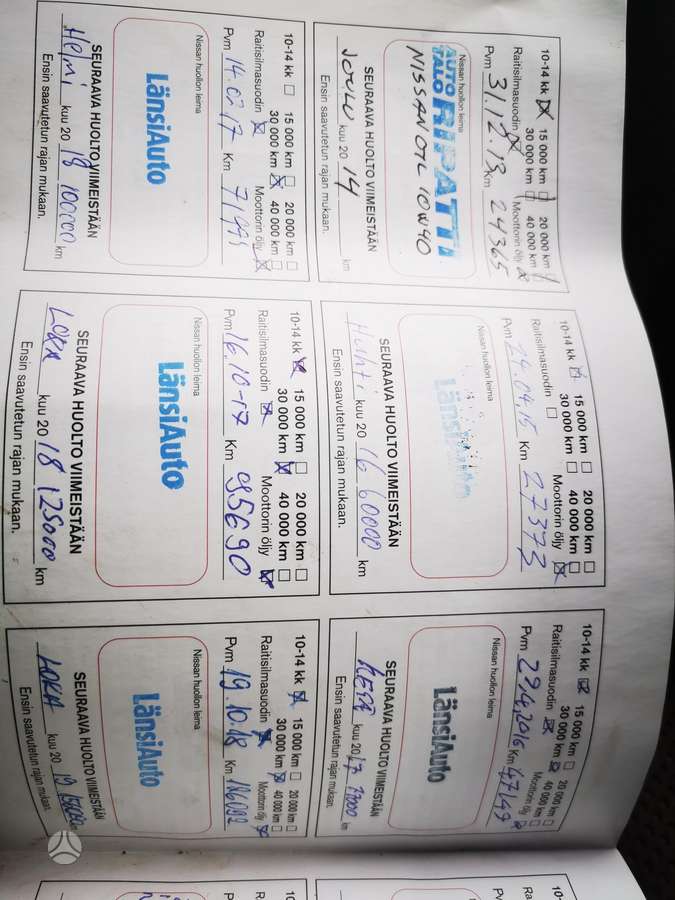 10-14 kk 15 000 km 20 000 km
30 000 km 40 000 km
Raitisilmasuodin Moottorin öljy
Pvm 31.12.13 Km 24365
Nissan huollon leima
AUTO TALO RIPATTI
NISSAN OTL 10W40
SEURAAVA HUOLTO VIIMEISTÄÄN
JOULU kuu 20 14 km
Ensin saavutetun rajan mukaan.
10-14 kk 15 000 km 20 000 km
30 000 km 40 000 km
Raitisilmasuodin Moottorin öljy
Pvm 24.04.15 Km 27373
Nissan huollon leima
LänsiAuto
SEURAAVA HUOLTO VIIMEISTÄÄN
Huhti kuu 20 16 60000 km
Ensin saavutetun rajan mukaan.
10-14 kk 15 000 km 20 000 km
30 000 km 40 000 km
Raitisilmasuodin Moottorin öljy
Pvm 29.4.2016 Km 47147
Nissan huollon leima
LänsiAuto
SEURAAVA HUOLTO VIIMEISTÄÄN
kuu 20 17 km
Ensin saavutetun rajan mukaan.
10-14 kk 15 000 km 20 000 km
30 000 km 40 000 km
Raitisilmasuodin Moottorin öljy
Pvm 14.02.17 Km
Nissan huollon leima
LänsiAuto
SEURAAVA HUOLTO VIIMEISTÄÄN
Helmi kuu 20 18 100000 km
Ensin saavutetun rajan mukaan.
10-14 kk 15 000 km 20 000 km
30 000 km 40 000 km
Raitisilmasuodin Moottorin öljy
Pvm 16.10-17 Km 95690
Nissan huollon leima
LänsiAuto
SEURAAVA HUOLTO VIIMEISTÄÄN
LOKA kuu 20 18 125000 km
Ensin saavutetun rajan mukaan.
10-14 kk 15 000 km 20 000 km
30 000 km 40 000 km
Raitisilmasuodin Moottorin öljy
Pvm 19.10.18 Km 116092
Nissan huollon leima
LänsiAuto
SEURAAVA HUOLTO VIIMEISTÄÄN
LOKA kuu 20 19 km
Ensin saavutetun rajan mukaan.